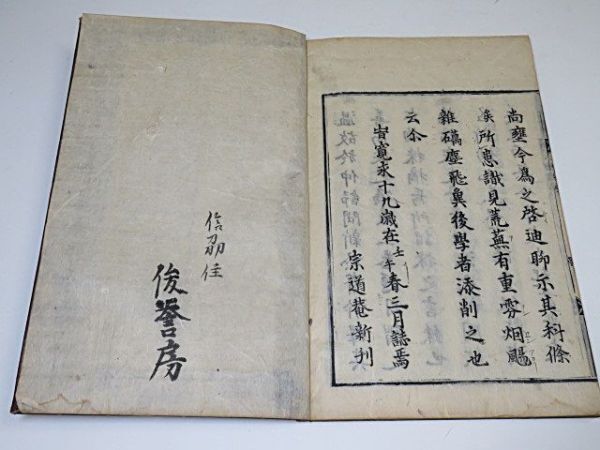 尚壅今為之啓迪聊示其科條
矣所恵識見荒蕪有重雰烟颺
雜礒塵飛冀後學者添削之也
云尒
旹寛永十九歳在壬午春三月誌焉
宗道菴新刊
信刕住
俊誉房